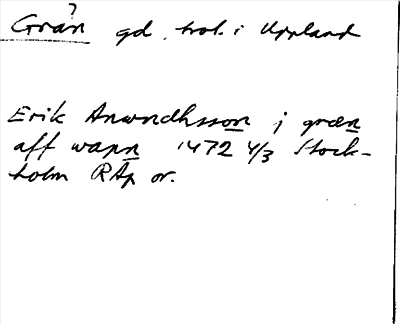 Grån? gd, trol. i Uppland
Erik Anwndhsson j græn
aff wapn 1472 4/3 Stock-
holm RAp or.